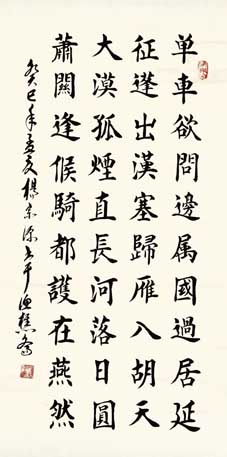 單車欲問邊属國過居延
征蓬出漢塞歸雁入胡天
大漠孤煙直長河落日圓
蕭關逢候騎都護在燕然
癸巳年孟夏楊